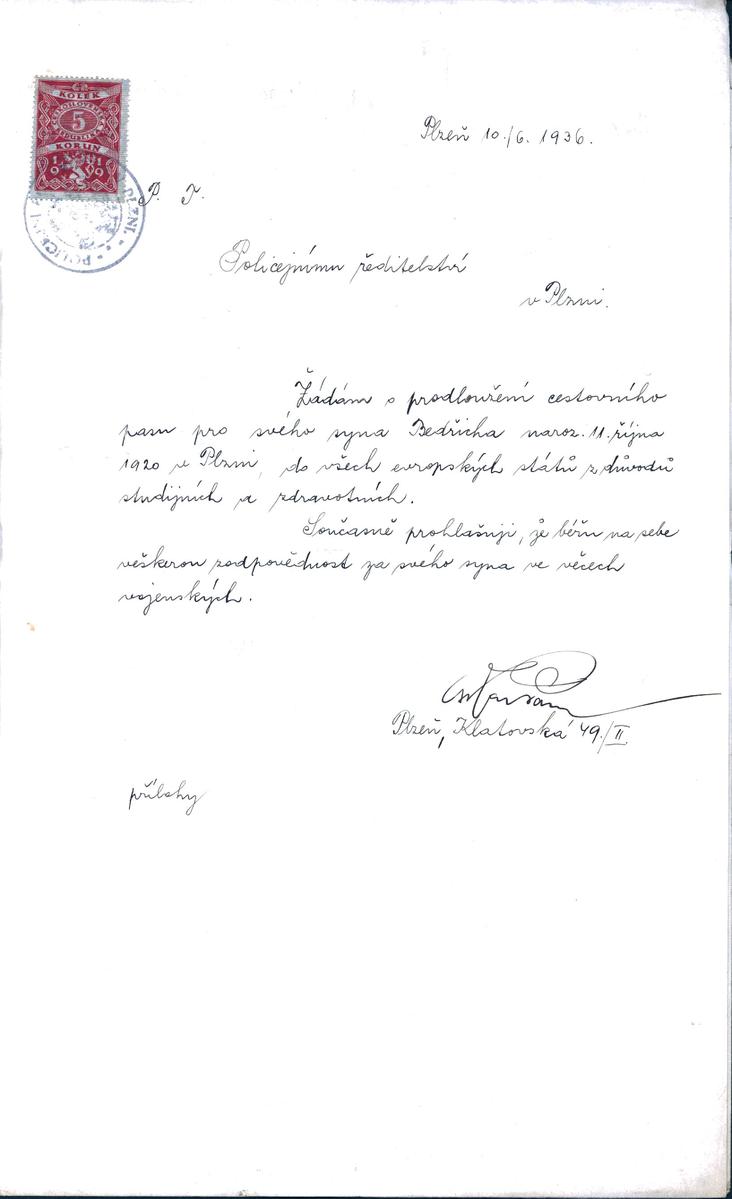 Č.R.
KOLEK
ČESKOSLOVENSKÁ
5
REPUBLIKA
KORUN
1919
POLICEJNÍ PLZNI.
Plzeň 10./6. 1936.
P. T.
Policejnímu ředitelství
v Plzni.
Žádám o prodloužení cestovního
pasu pro svého syna Bedřicha naroz. 11. října
1920 v Plzni, do všech evropských států z důvodů
studijních a zdravotních.
Současně prohlašuji, že béřu na sebe
veškerou zodpovědnost za svého syna ve věcech
vojenských.
Plzeň, Klatovská 49./II.
přílohy